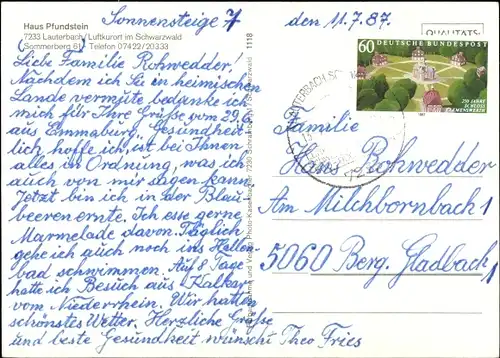 Haus Pfundstein
7233 Lauterbach/Luftkurort im Schwarzwald
Sommerberg 61, Telefon 07422/20333
Sonnensteige 7
den 11.7.87.
Liebe Familie Rohwedder,
Nachdem ich Sie in heimischen
Lande vermute, bedanke ich
mich für Ihre Grüße vom 29.6.
aus Emmaburg. Gesundheit-
lich, hoffe ich, ist bei Ihnen
alles in Ordnung, was ich
auch von mir sagen kann.
Jetzt bin ich in der Blau
beerenernte. Ich esse gerne
Marmelade davon. Täglich
gehe ich auch noch ins Hallen-
bad schwimmen. Auf 8 Tage
hatte ich Besuch aus Kalkar
vom Niederrhein. Wir hatten
schönstes Wetter. Herzliche Grüße
und beste Gesundheit wünscht Theo Fries
1118
QUALITÄTS
60 DEUTSCHE BUNDESPOST
250 JAHRE
SCHLOSS
CLEMENSWERTH
1987
Familie
Hans Rohwedder
Am Milchbornbach 1
5060 Berg. Gladbach 1